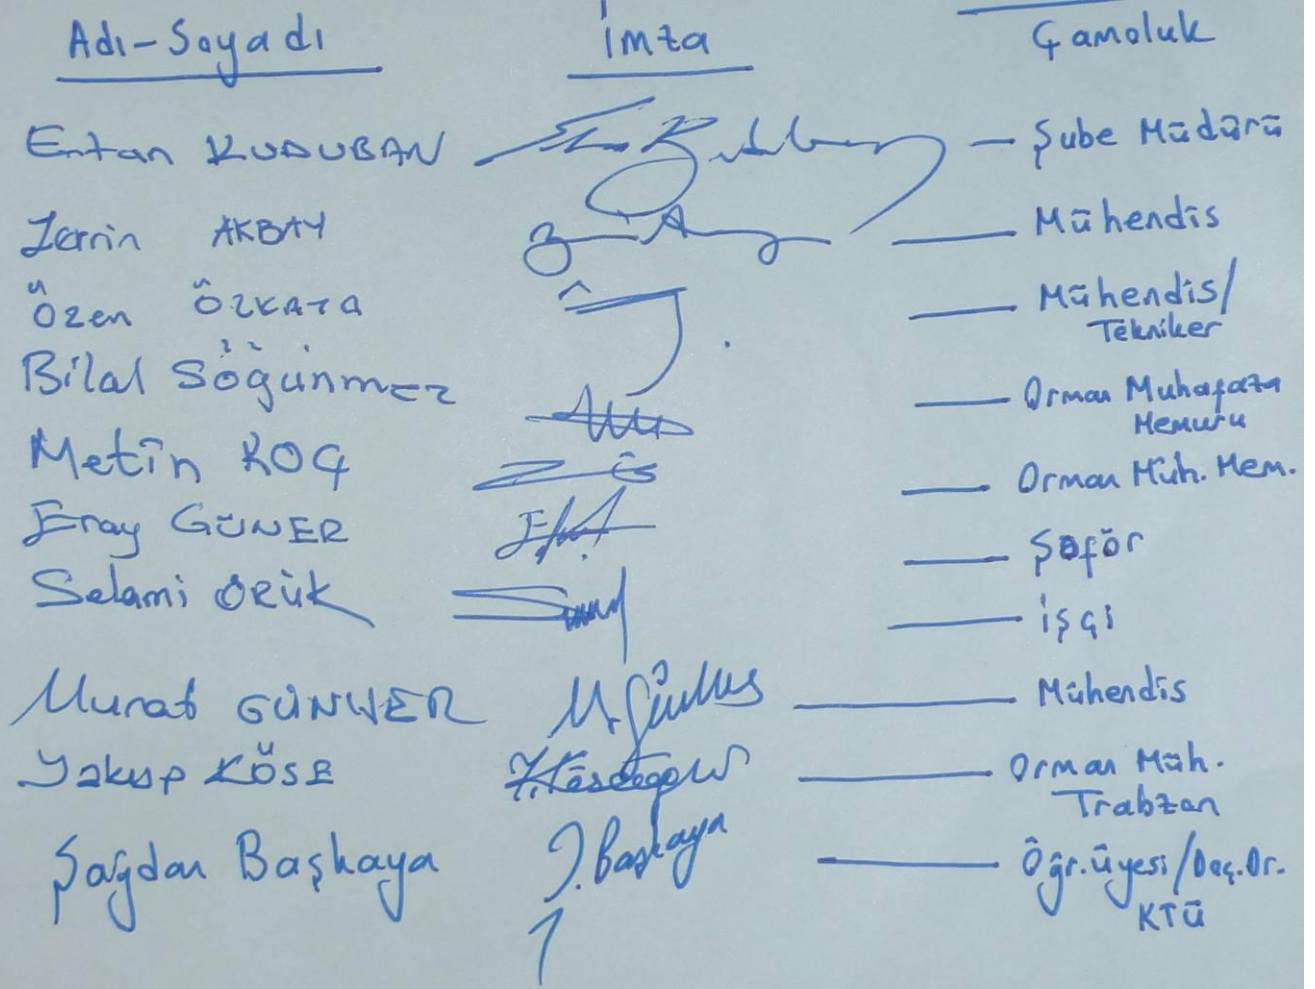 Adı-Soyadı İmza Çamoluk
Ertan KUDUBAN — Şube Müdürü
Zerrin AKBAY — Mühendis
Özen ÖZKAYA — Mühendis/
Tekniker
Bilal Söğünmez — Orman Muhafaza
Memuru
Metin KOÇ — Orman Muh. Mem.
Eray GÜNER — Şoför
Selami ÖRÜK — İşçi
Murat GÜNVER — Mühendis
Yakup KÖSE — Orman Müh.
Trabzon
Şağdan Başkaya Ş.Başkaya — Öğr.üyesi/Doç.Dr.
KTÜ